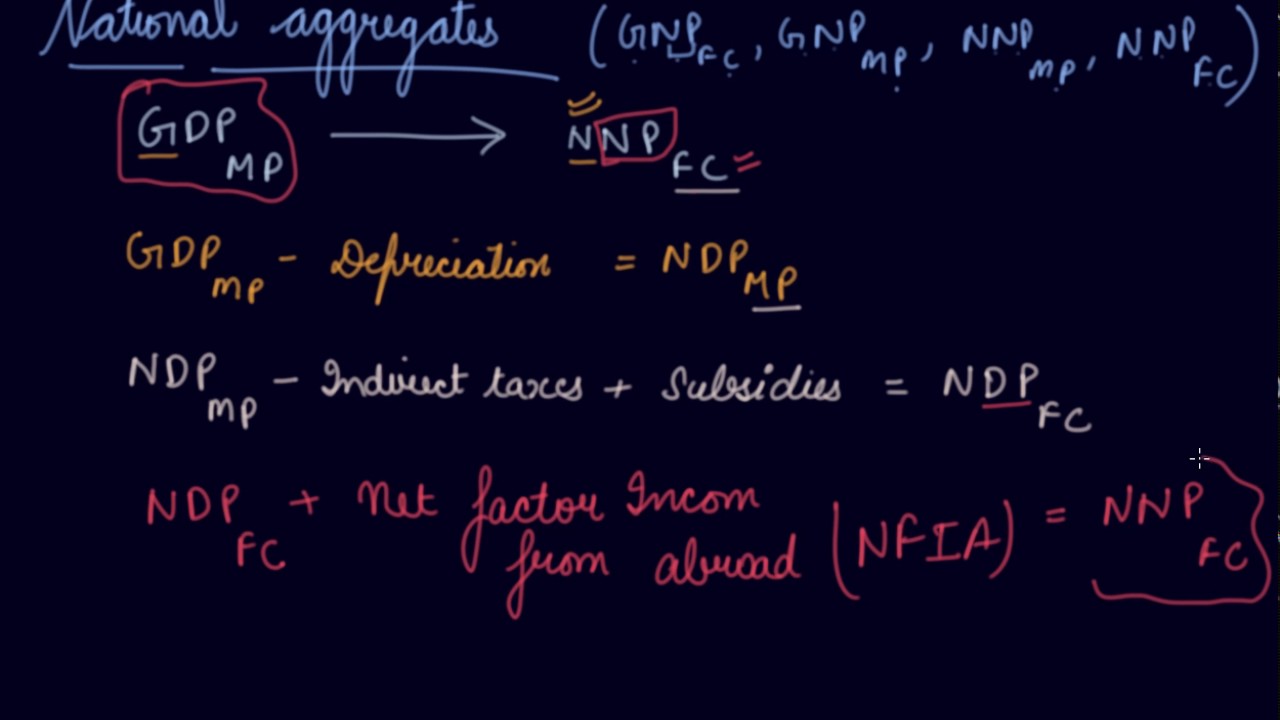 National aggregates (GNP FC, GNP MP, NNP MP, NNP FC)
GDP MP → NNP FC
GDP MP - Depreciation = NDP MP
NDP MP - Indirect taxes + Subsidies = NDP FC
NDP FC + Net factor Incom from abroad (NFIA) = NNP FC